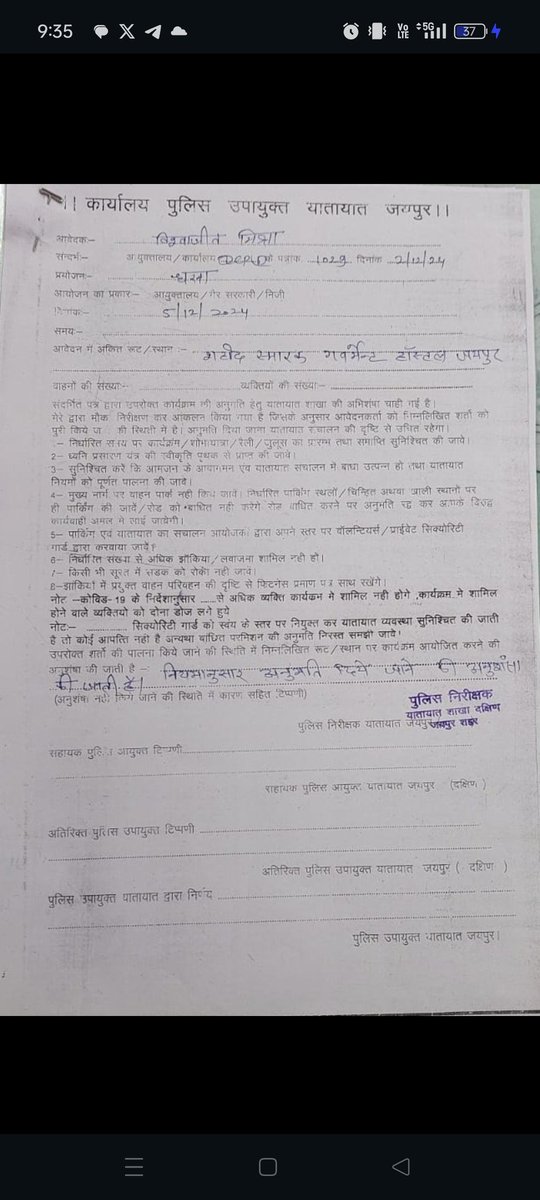 9:35
Vo LTE 5G 37
।। कार्यालय पुलिस उपायुक्त यातायात जयपुर।।
आवेदकः- विश्वजीत मिश्रा
संदर्भः- आयुक्तालय/कार्यालय DCP के पत्रांक 1029 दिनांक 2/12/24
प्रयोजनः- धरना
आयोजन का प्रकारः- आयुक्तालय/गैर सरकारी/निजी
दिनांकः- 5/12/2024
समयः-
आवेदन में अंकित रूट/स्थान :- शहीद स्मारक गवर्मेन्ट हॉस्टल जयपुर
वाहनों की संख्याः- व्यक्तियों की संख्याः-
संदर्भित पत्र द्वारा उपरोक्त कार्यक्रम की अनुमति हेतु यातायात शाखा की अभिशंषा चाही गई है।
मेरे द्वारा मौका निरीक्षण कर आंकलन किया गया है जिसके अनुसार आवेदनकर्ता को निम्नलिखित शर्तो को
पुरी किये जाने की स्थिति में है। अनुमति दिया जाना यातायात संचालन की दृष्टि से उचित रहेगा।
1- निर्धारित समय पर कार्यक्रम/शोभायात्रा/रैली/जुलूस का प्रारम्भ तथा समाप्ति सुनिश्चित की जावे।
2- ध्वनि प्रसारण यंत्र की स्वीकृति पृथक से प्राप्त की जावे।
3- सुनिश्चित करें कि आमजन के आवागमन एवं यातायात संचालन में बाधा उत्पन्न हो तथा यातायात
नियमों को पूर्णत पालना की जावे।
4- मुख्य मार्ग पर वाहन पार्क नही किये जावे। निर्धारित पार्किंग स्थलों/चिन्हित अथवा खाली स्थानों पर
ही पार्किंग की जावें/रोड को बाधित नही करेगे रोड बाधित करने पर अनुमति रद्द कर आपके विरुद्ध
कार्यवाही अमल मे लाई जायेगी।
5- पार्किंग एवं यातायात का संचालन आयोजकों द्वारा अपने स्तर पर वॉलन्टियर्स/प्राईवेट सिक्योरिटी
गार्ड द्वारा करवाया जावें।
6- निर्धारित संख्या से अधिक झांकिया/लवाजमा शामिल नही हो।
7- किसी भी सूरत में सडक को रोका नही जावे।
8-झांकियों में प्रयुक्त वाहन परिवहन की दृष्टि से फिटनेस प्रमाण पत्र साथ रखेंगे।
नोट -कोविड-19 के निर्देशानुसार से अधिक व्यक्ति कार्यकम मे शामिल नही होगे ,कार्यक्रम मे शामिल
होने वाले व्यक्तियो को दोनो डोज लगे हुये
नोटः- सिक्योरिटी गार्ड को स्वंय के स्तर पर नियुक्त कर यातायात व्यवस्था सुनिश्चित की जाती
है तो कोई आपत्ति नही है अन्यथा बांछित परमिशन की अनुमति निरस्त समझी जावे।
उपरोक्त शर्तो की पालना किये जाने की स्थिति में निम्नलिखित रूट/स्थान पर कार्यक्रम आयोजित करने की
अनुशंषा की जाती है - नियमानुसार अनुमति दिये जाने की अनुशंसा
की जाती है।
(अनुशंषा नही किये जाने की स्थिति में कारण सहित टिप्पणी)
पुलिस निरीक्षक
यातायात शाखा दक्षिण
जयपुर शहर
पुलिस निरीक्षक यातायात जयपुर
सहायक पुलिस आयुक्त टिप्पणी
सहायक पुलिस आयुक्त यातायात जयपुर (दक्षिण )
अतिरिक्त पुलिस उपायुक्त टिप्पणी
अतिरिक्त पुलिस उपायुक्त यातायात जयपुर ( दक्षिण )
पुलिस उपायुक्त यातायात द्वारा निर्णय
पुलिस उपायुक्त यातायात जयपुर।